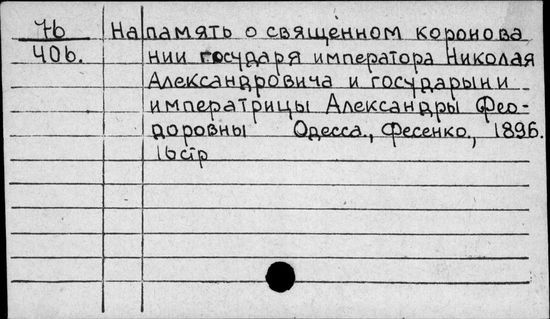 7б На память о священном коронова
40б. нии государя императора Николая
Александровича и государыни
императрицы Александры Фео-
доровны Одесса., Фесенко., 1896.
16стр